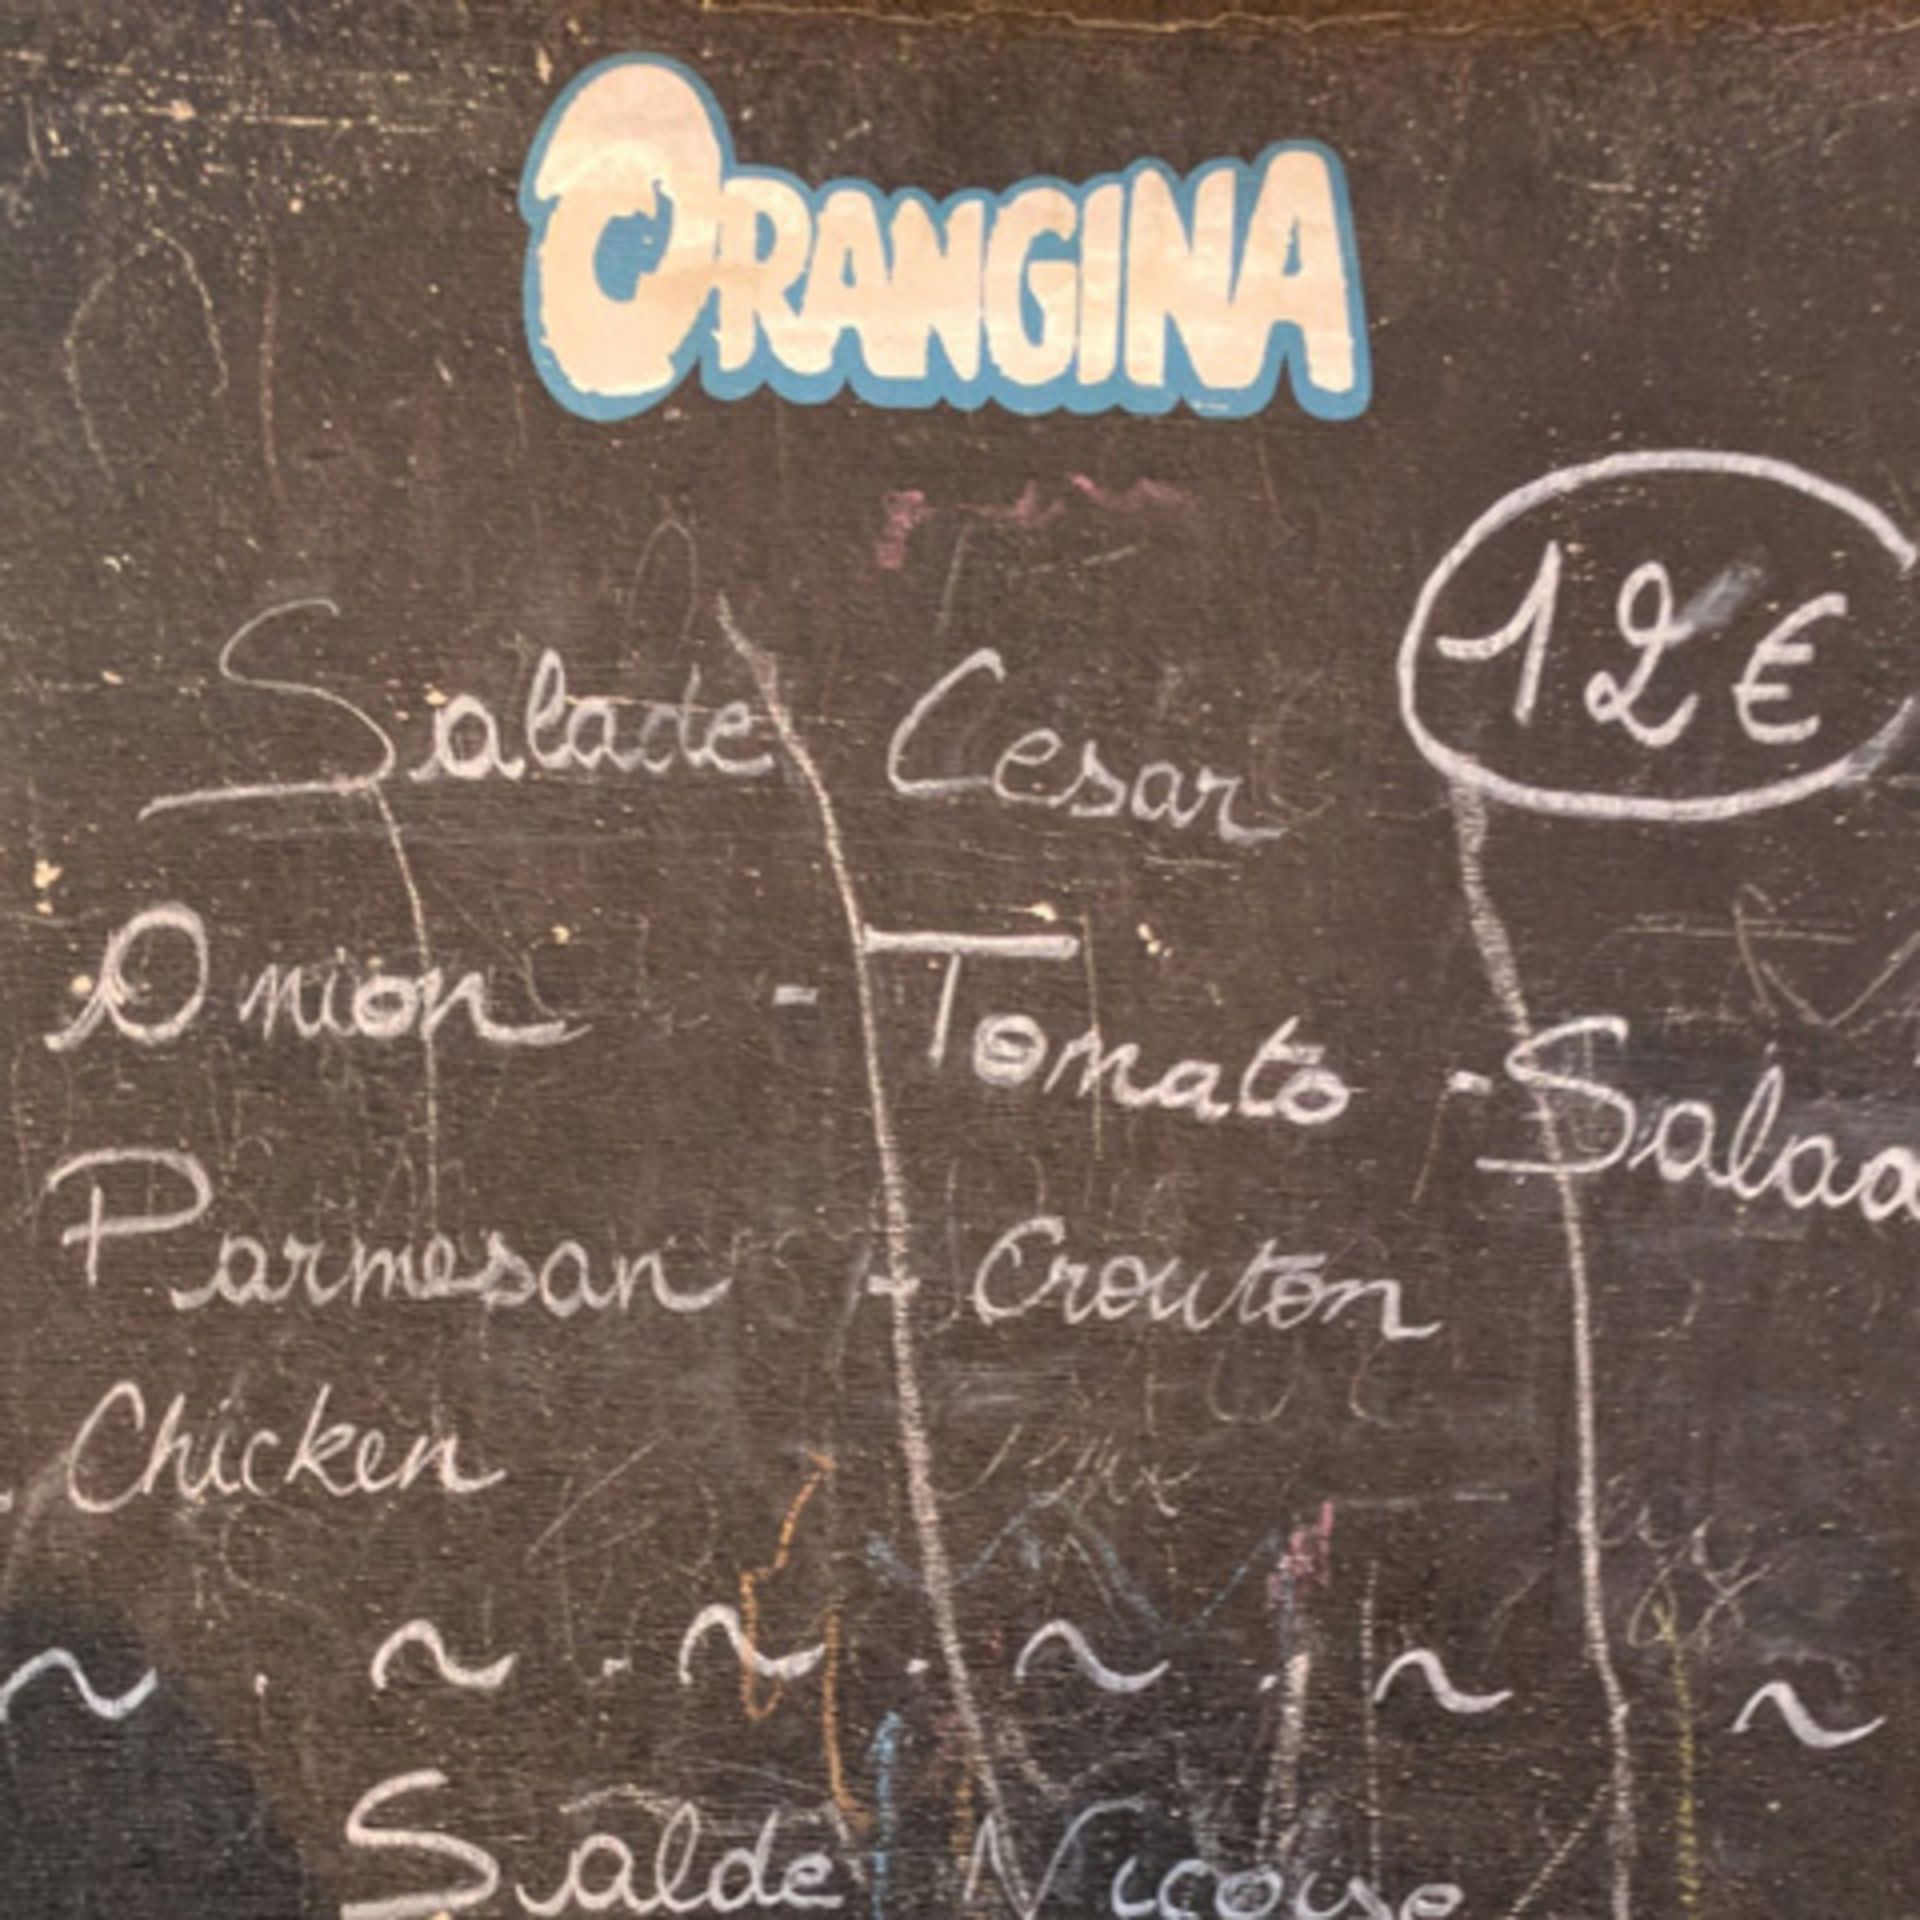 ORANGINA
Salade Cesar 12€
Onion - Tomato - Salad
Parmesan - Crouton
Chicken
~ . ~ . ~ . ~ . ~ ~
Salde Nicoise